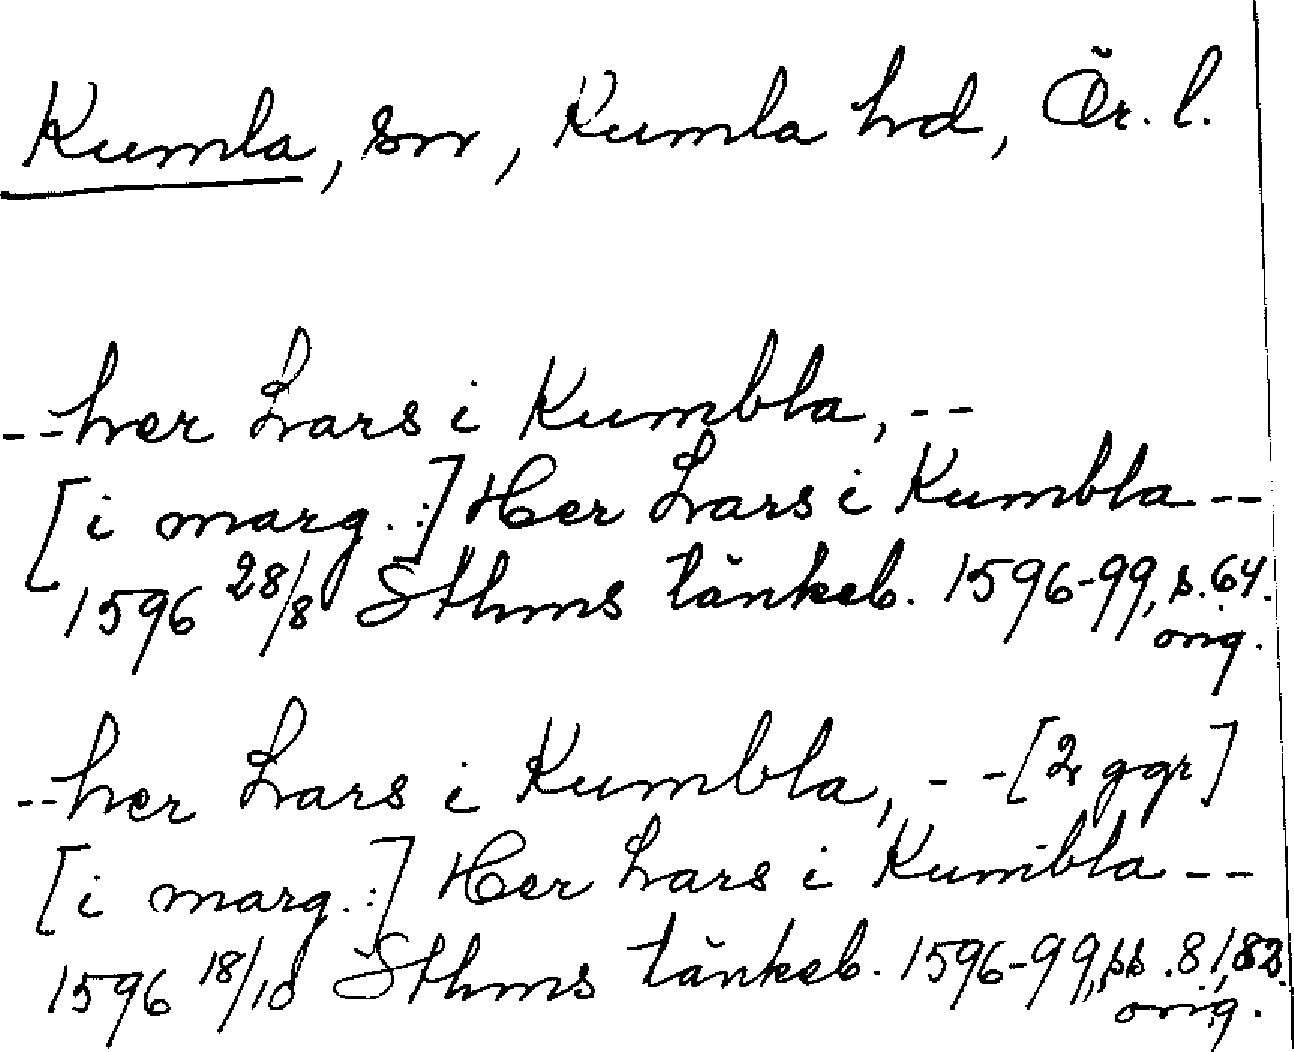 Kumla, sn, Kumla hd, Ör. l.
--her Lars i Kumbla, --
[i marg.:] Her Lars i Kumbla --
1596 28/8 Sthms tänkeb. 1596-99, s. 64.
orig.
--her Lars i Kumbla, -- [2 ggr]
[i marg.:] Her Lars i Kumbla --
1596 18/10 Sthms tänkeb. 1596-99, ss. 81, 82.
orig.